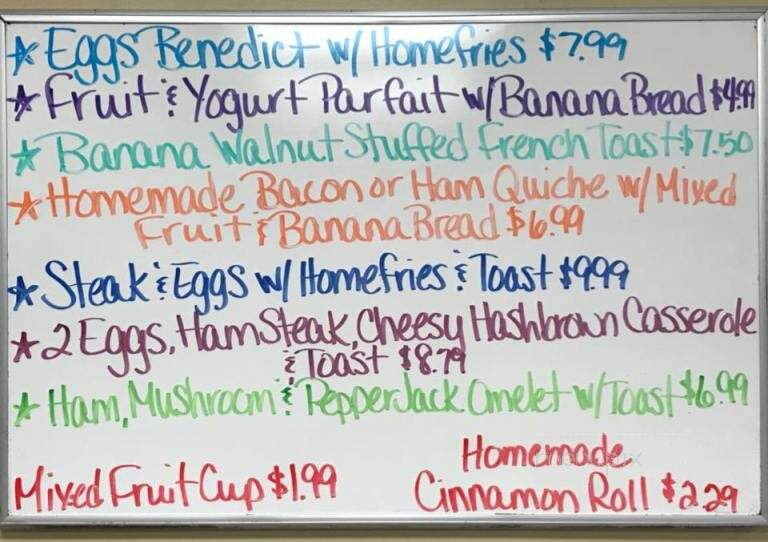 * Eggs Benedict w/ Homefries $7.99
* Fruit & Yogurt Parfait w/ Banana Bread $4.99
* Banana Walnut Stuffed French Toast $7.50
* Homemade Bacon or Ham Quiche w/ Mixed
Fruit & Banana Bread $6.99
* Steak & Eggs w/ Homefries & Toast $9.99
* 2 Eggs, Ham Steak, Cheesy Hashbrown Casserole
& Toast $8.79
* Ham, Mushroom & Pepper Jack Omelet w/ Toast $6.99
Mixed Fruit Cup $1.99
Homemade
Cinnamon Roll $2.29